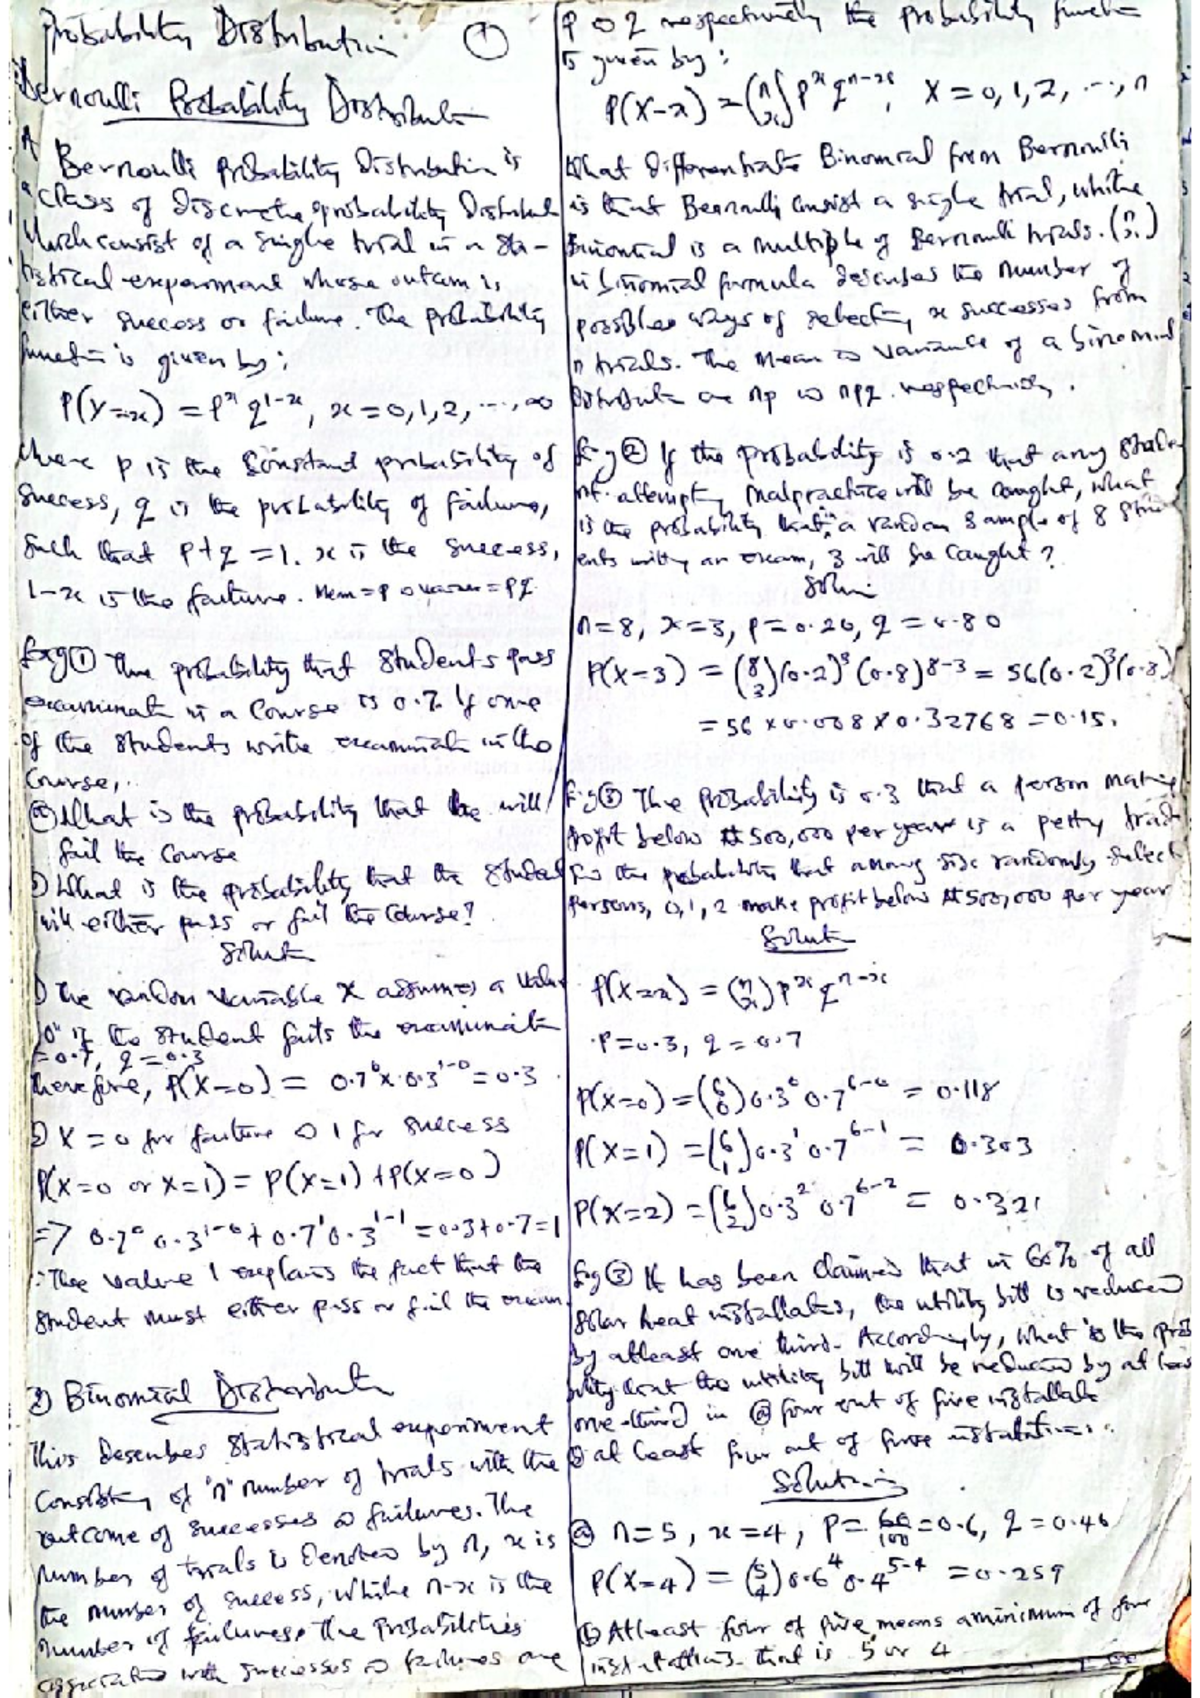 Probability Distribution 1
Bernoulli Probability Distribution
A Bernoulli probability Distribution is
a class of Discrete probability Distribut
which consist of a single trial in a sta-
tistical experiment whose outcom is
either success or failure. The probability
function is given by:
P(X=x) = p^x q^1-x, x=0,1,2, ..., ∞
where p is the constant probability of
success, q is the probability of failure,
such that p+q=1. x is the success,
1-x is the failure. Mean=p & varian=pq.
Eg① The probability that students pass
examination in a course is 0.7. If one
of the students write examination in the
course,
ⓐ What is the probability that he will
fail the course
What is the probability that the student
will either pass or fail the course?
Solution
1) The random variable X assumes a value
"0" if the student fails the examination
p=0.7, q=0.3
therefore, P(X=0) = 0.7^0 x 0.3^1-0 = 0.3
2) X=0 for failure & 1 for success
P(X=0 or X=1) = P(X=1)+P(X=0)
=> 0.7^0 0.3^1-0 + 0.7^1 0.3^1-1 = 0.3+0.7=1
∴ The value 1 explains the fact that the
student must either pass or fail the exam
2) Binomial Distribution
This describes statistical experiment
consisting of "n" number of trials with the
outcome of successes & failures. The
number of trials is denoted by n, x is
the number of success, while n-x is the
number of failures. The probabilities
associated with successes & failures are
p & q respectively the probability function
is given by:
P(X=x) = (n x) p^x q^n-x, X=0,1,2, ..., n
What differentiate Binomial from Bernoulli
is that Bernoulli consist a single trial, while
Binomial is a multiple of Bernoulli trials. (n x)
in binomial formula describes the number of
possible ways of selecting x successes from
n trials. The mean & variance of a binomial
Distribution are np & npq respectively.
Eg② If the probability is 0.2 that any stude
nt attempting malpractice will be caught, what
is the probability that in a random sample of 8 stud
ents writing an exam, 3 will be caught?
Soln
n=8, x=3, p=0.20, q=0.80
P(X=3) = (8 3)(0.2)^3 (0.8)^8-3 = 56(0.2)^3(0.8)
= 56 x 0.008 x 0.32768 = 0.15.
Eg③ The probability is 0.3 that a person making
profit below ₦500,000 per year is a petty trad
the probabilities that among six randomly select
persons, 0,1,2 make profit below ₦500,000 per year
Solution
P(X=x) = (n x) p^x q^n-x
p=0.3, q=0.7
P(X=0) = (6 0) 0.3^0 0.7^6-0 = 0.118
P(X=1) = (6 1) 0.3^1 0.7^6-1 = 0.303
P(X=2) = (6 2) 0.3^2 0.7^6-2 = 0.321
Eg③ It has been claimed that in 60% of all
solar heat installates, the utility bill is reduced
by atleast one third. Accordingly, what is the prob
bility that the utility bill will be reduced by at leas
one-third in ⓐ four out of five installati
ⓑ at least four out of five installations.
Solution
ⓐ n=5, x=4, p=60/100=0.6, q=0.40
P(X=4) = (5 4) 0.6^4 0.4^5-4 = 0.259
ⓑ Atleast four of five means a minimum of four
installations that is 5 or 4